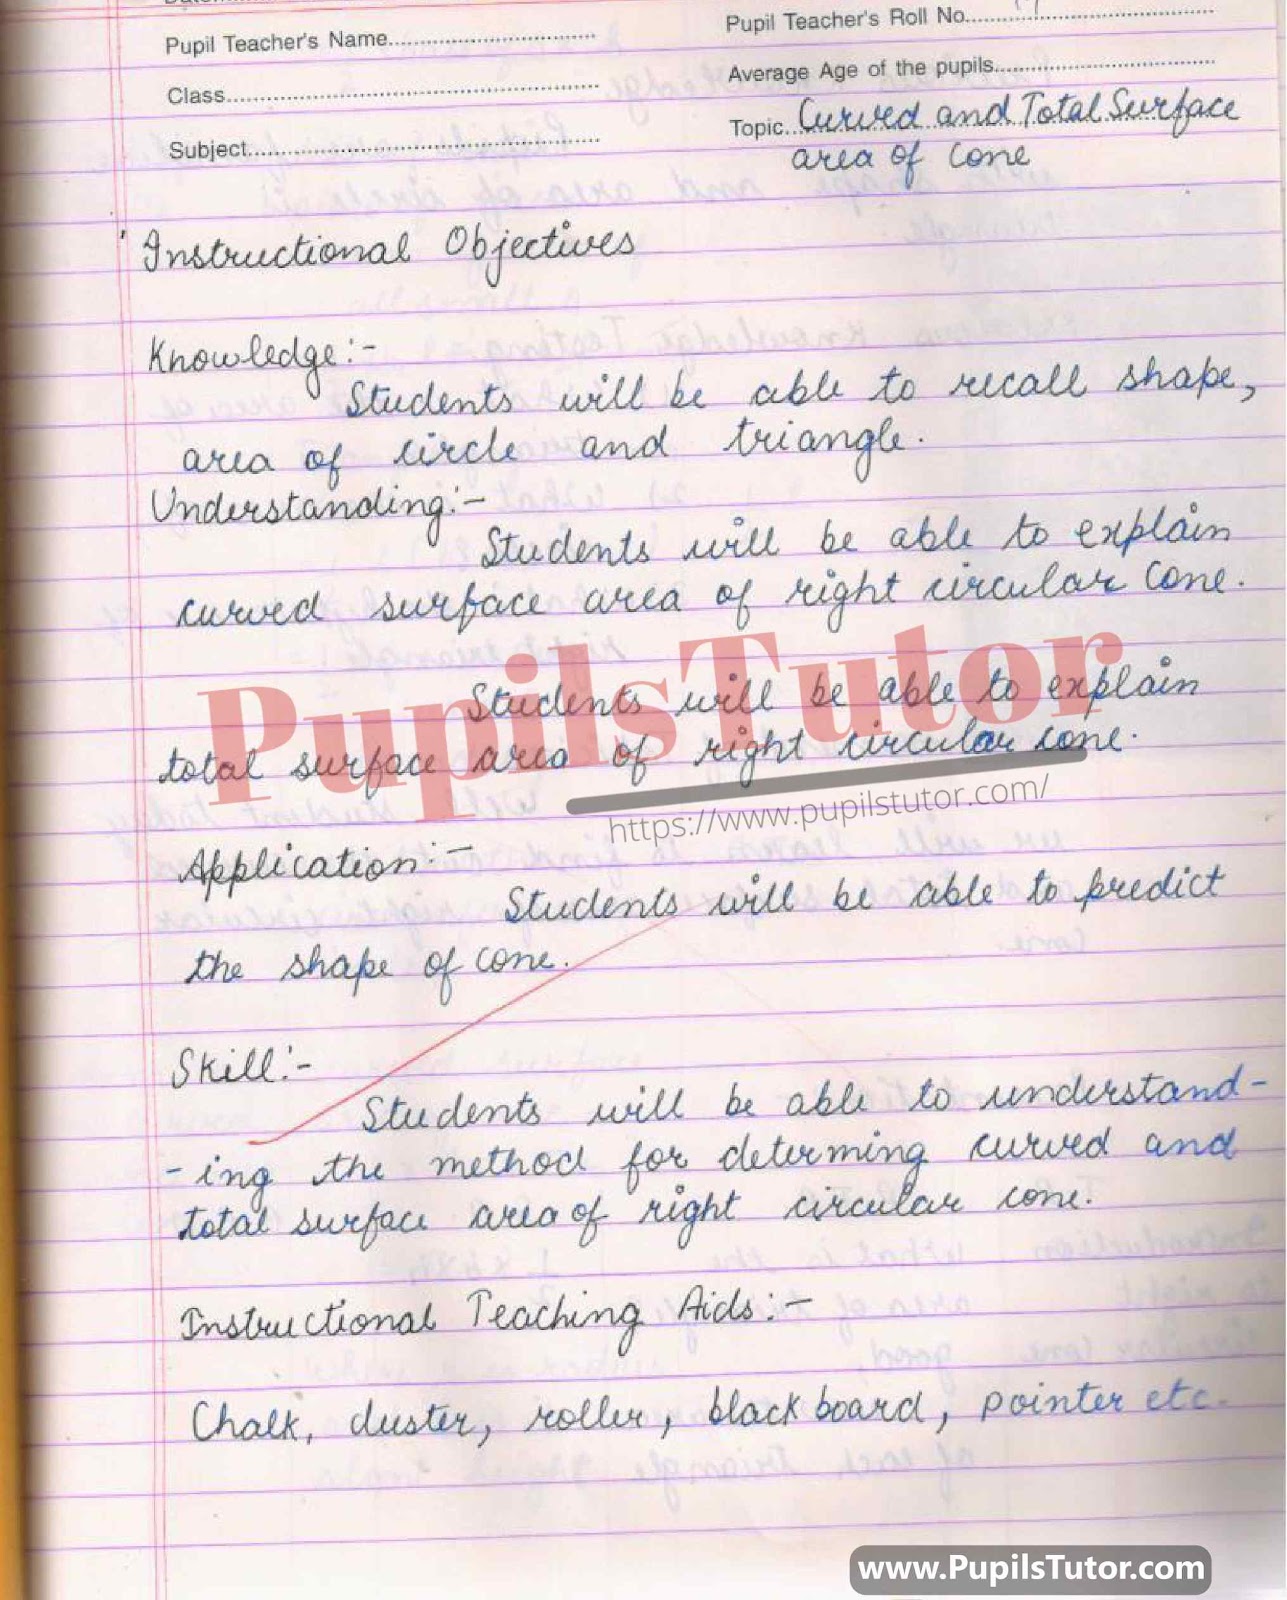 Pupil Teacher's Roll No.
Pupil Teacher's Name
Average Age of the pupils
Class
Topic Curved and Total Surface
area of cone
Subject
Instructional Objectives
Knowledge:-
Students will be able to recall shape,
area of circle and triangle.
Understanding:-
Students will be able to explain
curved surface area of right circular cone.
PupilsTutor
Students will be able to explain
total surface area of right circular cone.
https://www.pupilstutor.com/
Application:-
Students will be able to predict
the shape of cone.
Skill:-
Students will be able to understand-
-ing the method for determing curved and
total surface area of right circular cone.
Instructional Teaching Aids:-
Chalk, duster, roller, black board, pointer etc.
www.PupilsTutor.com